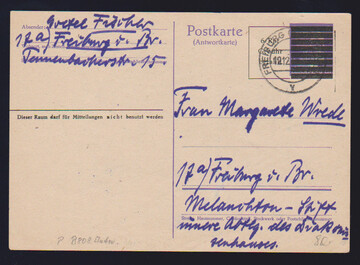 Absender: Gretel Fischer
17a) Freiburg i. Br.
Tennenbacherstr. 15.
Dieser Raum darf für Mitteilungen nicht benutzt werden
Postkarte
(Antwortkarte)
FREIBURG
12.12
Frau Margarete Wrede
17a) Freiburg i. Br.
Melanchton-Stift
innere Abtlg. des Diakonis-
senhauses.